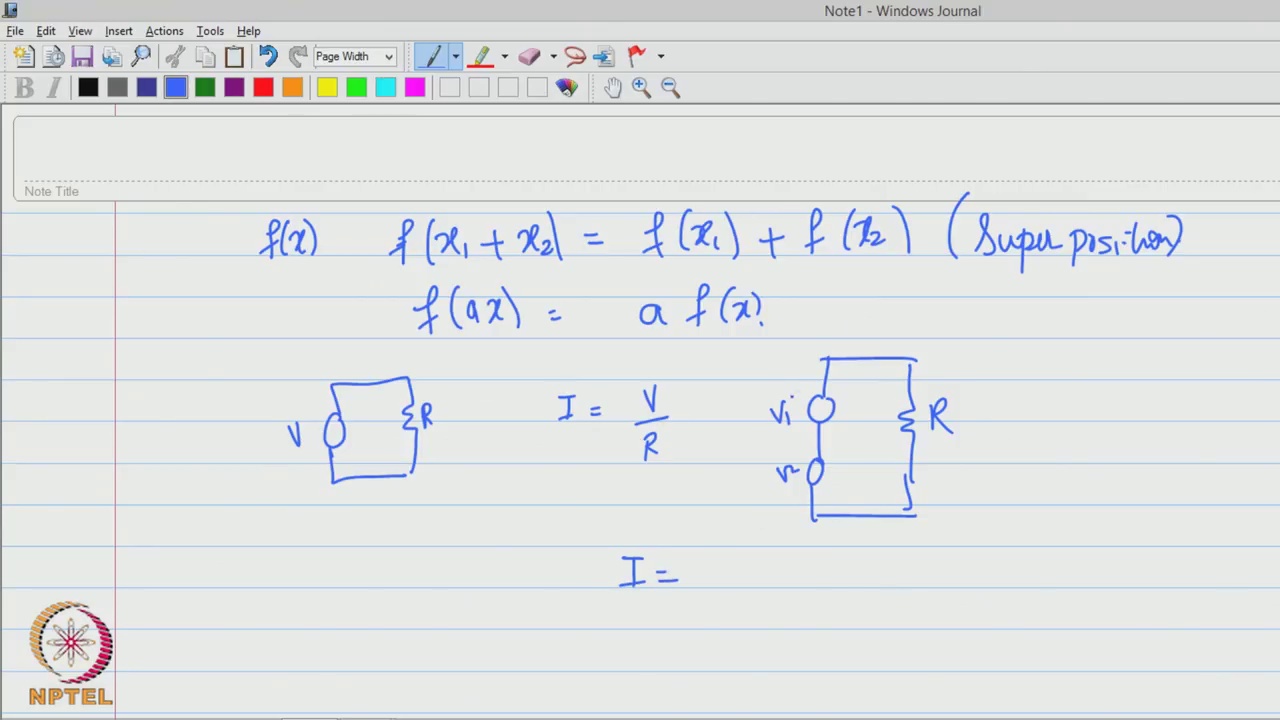 Note1 - Windows Journal
File Edit View Insert Actions Tools Help
Page Width
B I
Note Title
f(x) f(x1 + x2) = f(x1) + f(x2) (Superposition)
f(ax) = a f(x)
V R I = V/R V1 R
V2
I =
NPTEL